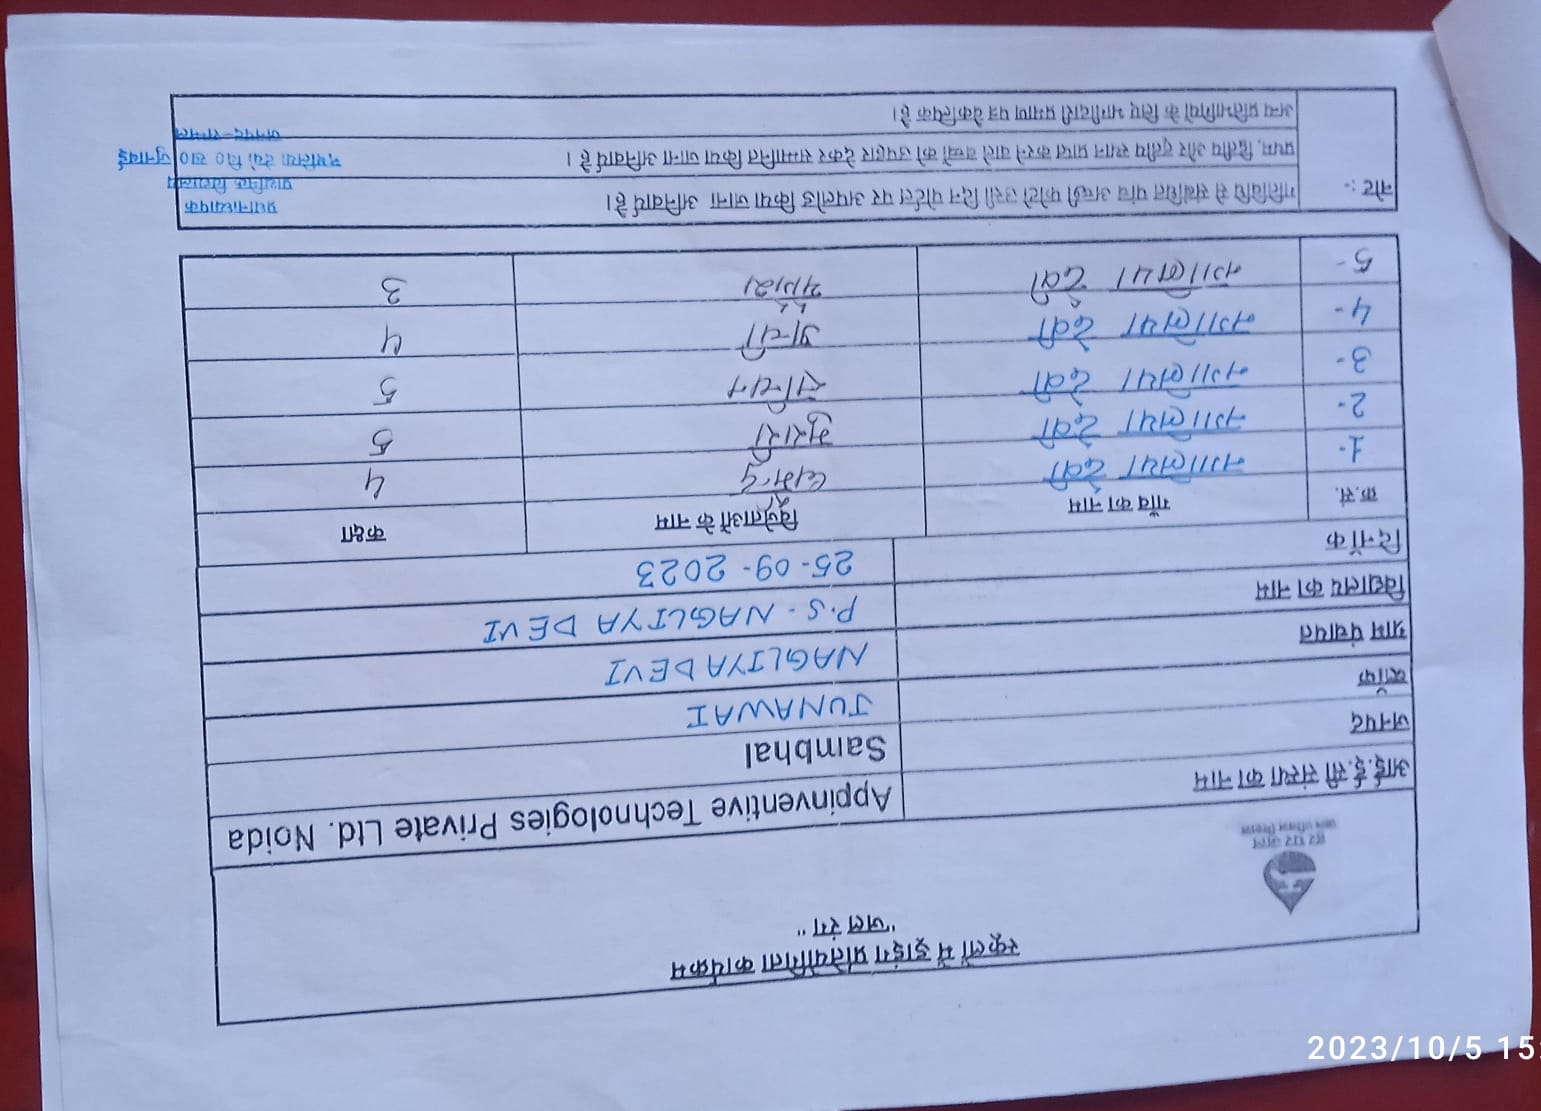 स्कूलों में ड्राइंग प्रतियोगिता कार्यक्रम
"जल रंग"
हर घर जल
जल जीवन मिशन
आई.ई.सी संस्था का नाम Appinventive Technologies Private Ltd. Noida
जनपद Sambhal
ब्लॉक JUNAWAI
ग्राम पंचायत NAGLIYA DEVI
विद्यालय का नाम P.S. NAGLIYA DEVI
दिनाँक 25-09-2023
क्र.सं. गाँव का नाम विजेताओं के नाम कक्षा
1- नगलिया देवी 4
2- नगलिया देवी 5
3- नगलिया देवी 5
4- नगलिया देवी 4
5- नगलिया देवी 3
नोट :- गतिविधि से संबंधित पांच अच्छी फोटो उसी दिन पोर्टल पर अपलोड किया जाना अनिवार्य है।
प्रथम, द्वितीय और तृतीय स्थान प्राप्त करने वाले बच्चों को उपहार देकर सम्मानित किया जाना अनिवार्य है ।
अन्य प्रतिभागियों के लिए भागीदारी प्रमाण पत्र वैकल्पिक है।
प्रधानाध्यापक
प्राथमिक विद्यालय
नगलिया देवी वि० ख० जुनावई
जनपद-सम्भल
2023/10/5 15: